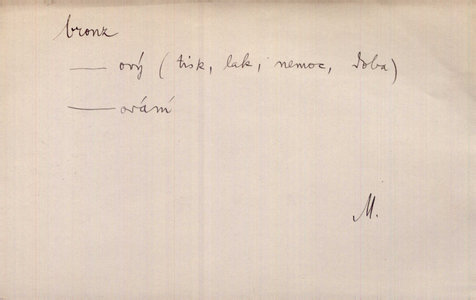 bronz
— ový (tisk, lak, nemoc, doba)
— ování
M.